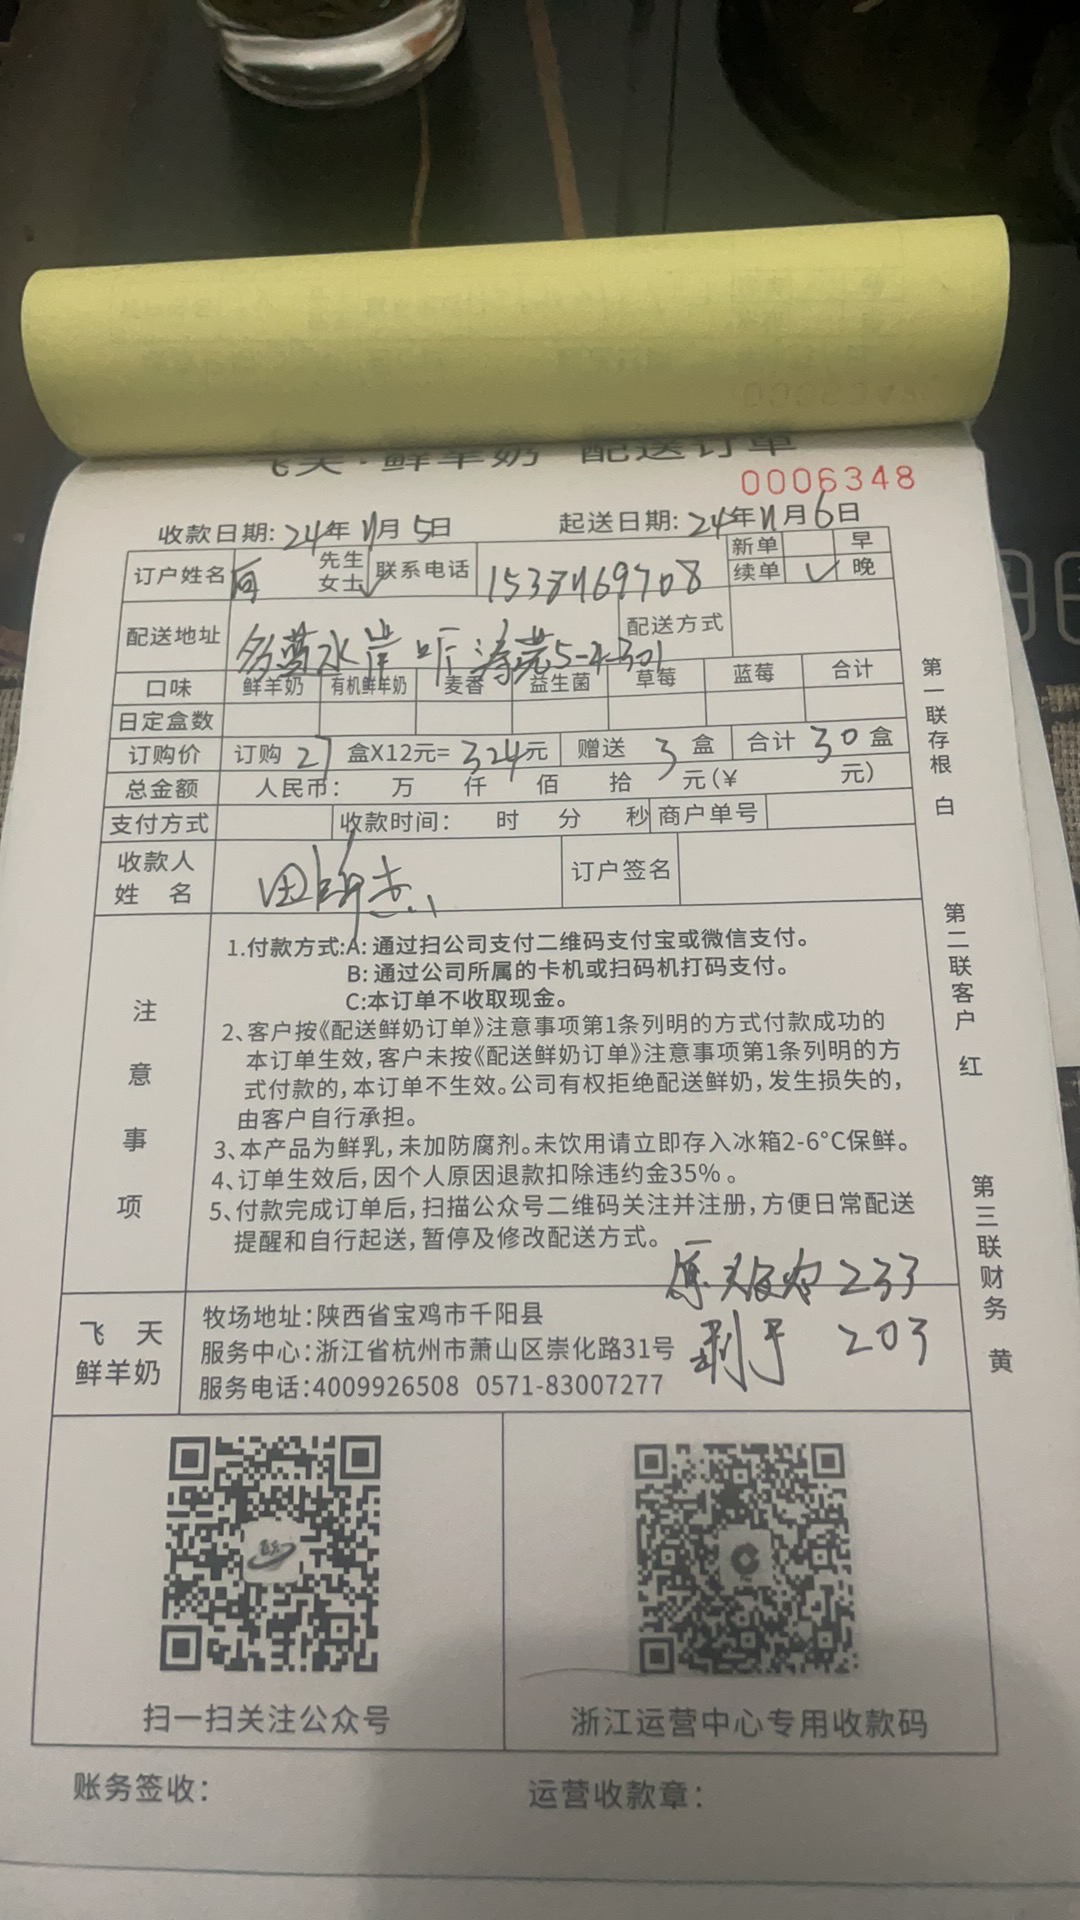 飞天·鲜羊奶 配送订单
0006348
收款日期: 24年11月5日 起送日期: 24年11月6日
订户姓名 先生 女士✓ 联系电话 新单 早
续单 ✓ 晚
配送地址 水岸 5-2-301 配送方式
口味 鲜羊奶 有机鲜羊奶 麦香 益生菌 草莓 蓝莓 合计
日定盒数
订购价 订购 27 盒X12元= 324元 赠送 3 盒 合计 30 盒
总金额 人民币: 万 仟 佰 拾 元(¥ 元)
支付方式 收款时间: 时 分 秒 商户单号
收款人姓名 田 订户签名
注意事项
1.付款方式:A: 通过扫公司支付二维码支付宝或微信支付。
B: 通过公司所属的卡机或扫码机打码支付。
C:本订单不收取现金。
2、客户按《配送鲜奶订单》注意事项第1条列明的方式付款成功的
本订单生效,客户未按《配送鲜奶订单》注意事项第1条列明的方
式付款的,本订单不生效。公司有权拒绝配送鲜奶,发生损失的,
由客户自行承担。
3、本产品为鲜乳,未加防腐剂。未饮用请立即存入冰箱2-6°C保鲜。
4、订单生效后,因个人原因退款扣除违约金35%。
5、付款完成订单后,扫描公众号二维码关注并注册,方便日常配送
提醒和自行起送,暂停及修改配送方式。
原 233
剩于 203
飞天
鲜羊奶
牧场地址:陕西省宝鸡市千阳县
服务中心:浙江省杭州市萧山区崇化路31号
服务电话:4009926508 0571-83007277
扫一扫关注公众号
浙江运营中心专用收款码
账务签收: 运营收款章:
第一联存根 白
第二联客户 红
第三联财务 黄